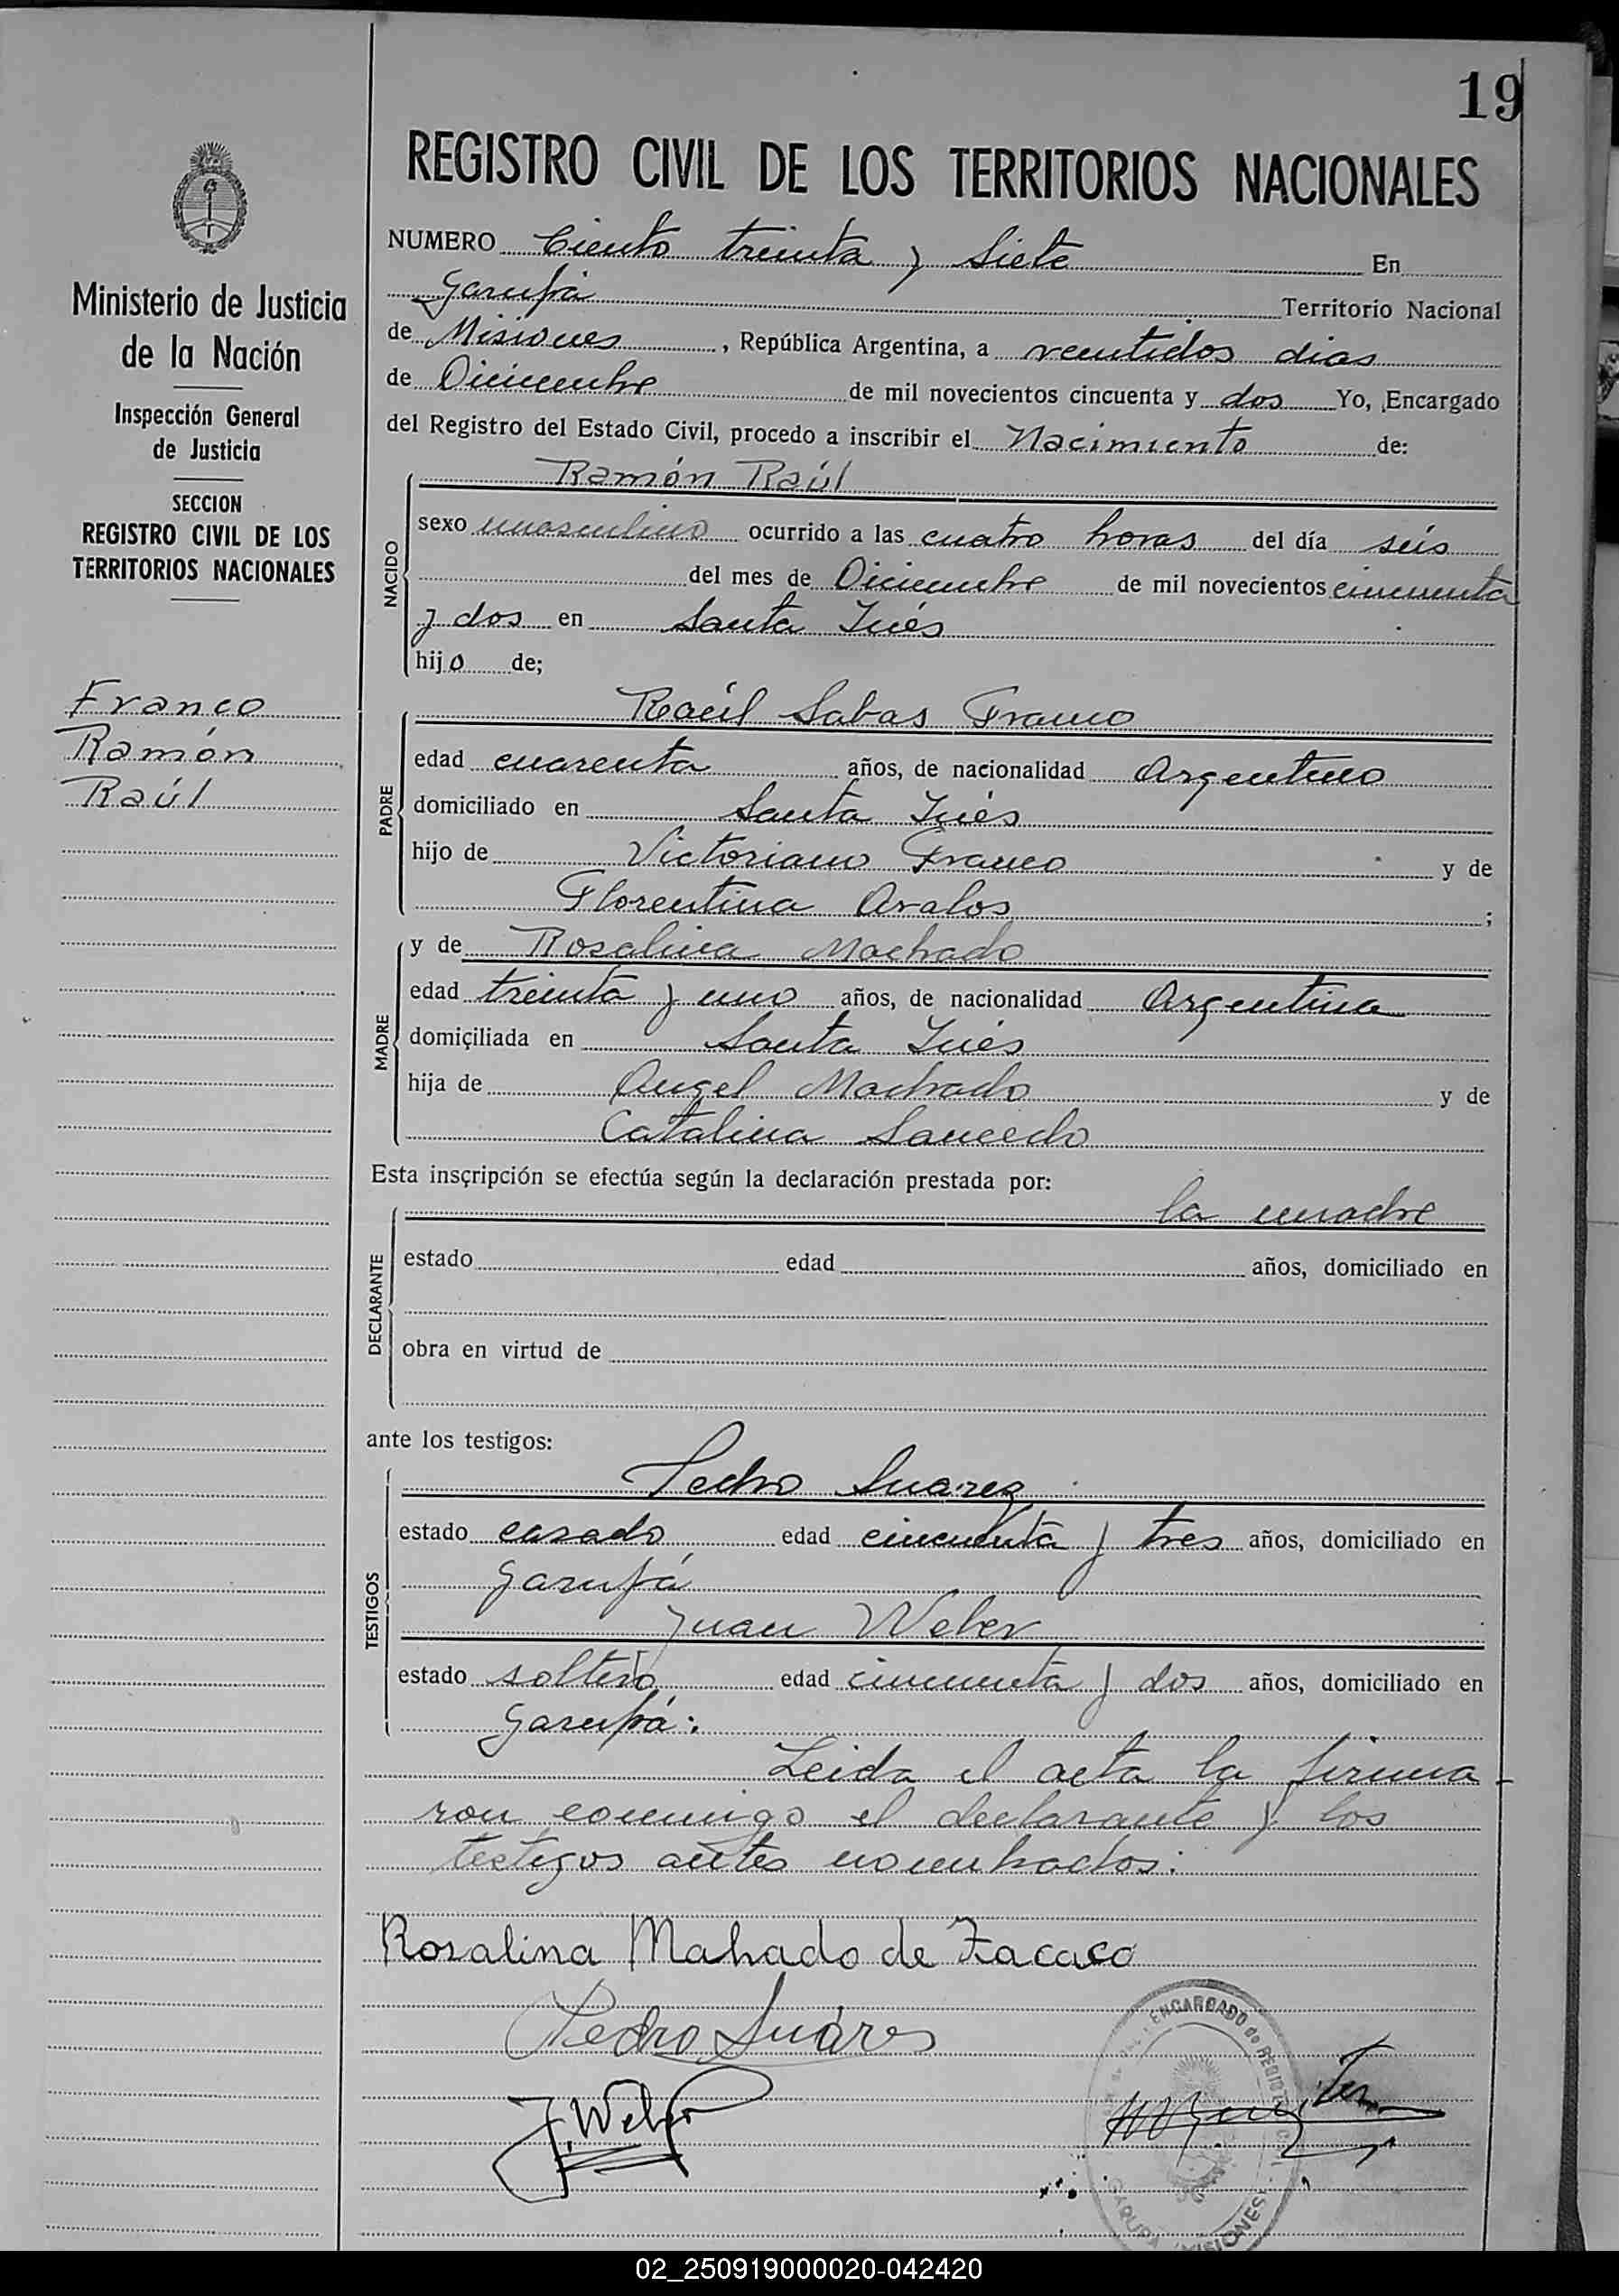 19
REGISTRO CIVIL DE LOS TERRITORIOS NACIONALES
Ministerio de Justicia
de la Nación
Inspección General
de Justicia
SECCION
REGISTRO CIVIL DE LOS
TERRITORIOS NACIONALES
Franco
Ramón
Raúl
NUMERO Ciento treinta y Siete En
Garupá Territorio Nacional
de Misiones, República Argentina, a veintidos dias
de Diciembre de mil novecientos cincuenta y dos Yo, Encargado
del Registro del Estado Civil, procedo a inscribir el Nacimiento de:
NACIDO
Ramón Raúl
sexo masculino ocurrido a las cuatro horas del día seis
del mes de Diciembre de mil novecientos cincuenta
y dos en Santa Inés
hijo de;
PADRE
Raúl Sabas Franco
edad cuarenta años, de nacionalidad Argentino
domiciliado en Santa Inés
hijo de Victoriano Franco y de
Florentina Avalos;
MADRE
y de Rosalina Machado
edad treinta y uno años, de nacionalidad Argentina
domiciliada en Santa Inés
hija de Angel Machado y de
Catalina Saucedo
Esta inscripción se efectúa según la declaración prestada por:
DECLARANTE
la madre
estado edad años, domiciliado en
obra en virtud de
ante los testigos:
TESTIGOS
Pedro Suarez
estado casado edad cincuenta y tres años, domiciliado en
Garupá
Juan Weber
estado soltero edad cincuenta y dos años, domiciliado en
Garupá:
Leida el acta la firma-
ron conmigo el declarante y los
testigos antes nombrados:
Rosalina Mahado de Facaco
Pedro Suáres
J. Weber
ENCARGADO de REGISTRO
GARUPA MISIONES
02_250919000020-042420